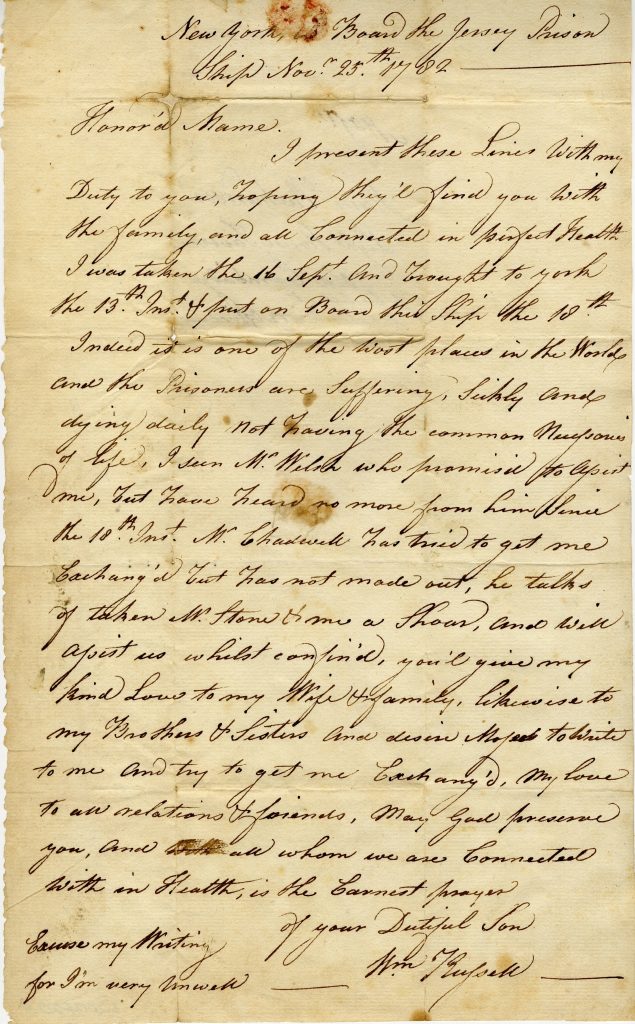 New York, on Board the Jersey Prison
Ship Novr. 25th. 1782
Honor'd Mame.
I present these Lines With my
Duty to you, hoping they'l find you With
the family, and all Connected in perfect Health
I was taken the 16 Sept. And brought to york
the 13th. Inst. & put on Board this Ship the 18th
Indeed it is one of the Wost places in the World
and the Prisoners are Suffering, Sickly And
dying daily Not having the common Nessesaries
of life, I seen Mr. Welsh who promis'd to Assist
me, but have heard no more from him Since
the 18th. Inst. Mr. Chadwell has tried to get me
Exchang'd but has not made out, he talks
of taken Mr. Stone & me a Shoar, And will
Assist us whilst confin'd, you'l give my
kind Love to my Wife & family, likewise to
my Brothers & Sisters And desire to Write
to me And try to get me Exchang'd, My love
to all relations & friends, May God preserve
you, And all whom we are Connected
With in Health, is the Earnest prayer
of your Dutiful Son
Wm Russell
Excuse my Writing
for I'm very Unwell